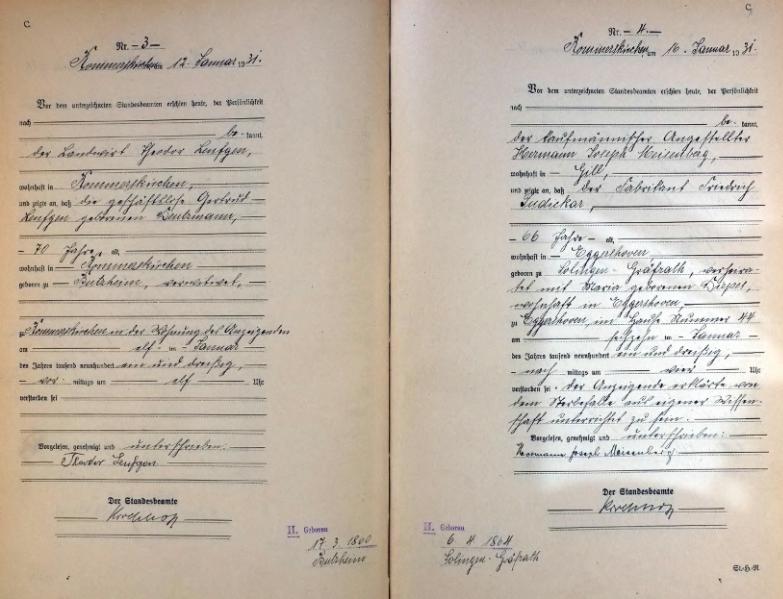 C.
Nr. - 3 -
Rommerskirchen am 12. Januar 1931.
Vor dem unterzeichneten Standesbeamten erschien heute, der Persönlichkeit
nach
be- kannt,
der Landwirt Theodor
wohnhaft in Rommerskirchen,
und zeigte an, daß die geschäftslose Gertrud
geborenen
- 70 Jahre alt,
wohnhaft in Rommerskirchen
geboren zu Butzheim, verwitwet,
zu Rommerskirchen in der Wohnung des Anzeigenden
am elf- ten Januar
des Jahres tausend neunhundert ein und dreißig,
- vor- mittags um elf Uhr
verstorben sei
Vorgelesen, genehmigt und unterschrieben.
Theodor
Der Standesbeamte
II. Geboren
17. 3. 1860
Butzheim
C.
Nr. - 4. -
Rommerskirchen, am 16. Januar 1931.
Vor dem unterzeichneten Standesbeamten erschien heute, der Persönlichkeit
nach
be- kannt,
der kaufmännischer Angestellter
Hermann Joseph Meisenberg,
wohnhaft in Gill,
und zeigte an, daß der Fabrikant Friedrich
- 66 Jahre - alt,
wohnhaft in Eggershoven,
geboren zu Solingen-Gräfrath, verheira-
tet mit Maria geborenen
wohnhaft in Eggershoven,
zu Eggershoven, im Hause Nummer 44
am Januar
des Jahres tausend neunhundert ein und dreißig,
- nach - mittags um vier Uhr
verstorben sei. der Anzeigende erklärte von
dem Sterbefalle aus eigener Wissen-
schaft unterrichtet zu sein.
Vorgelesen, genehmigt und unterschrieben:
Hermann Joseph Meisenberg
Der Standesbeamte
II. Geboren
6. 4. 1864
Solingen-Gräfrath
St.-H.-R.